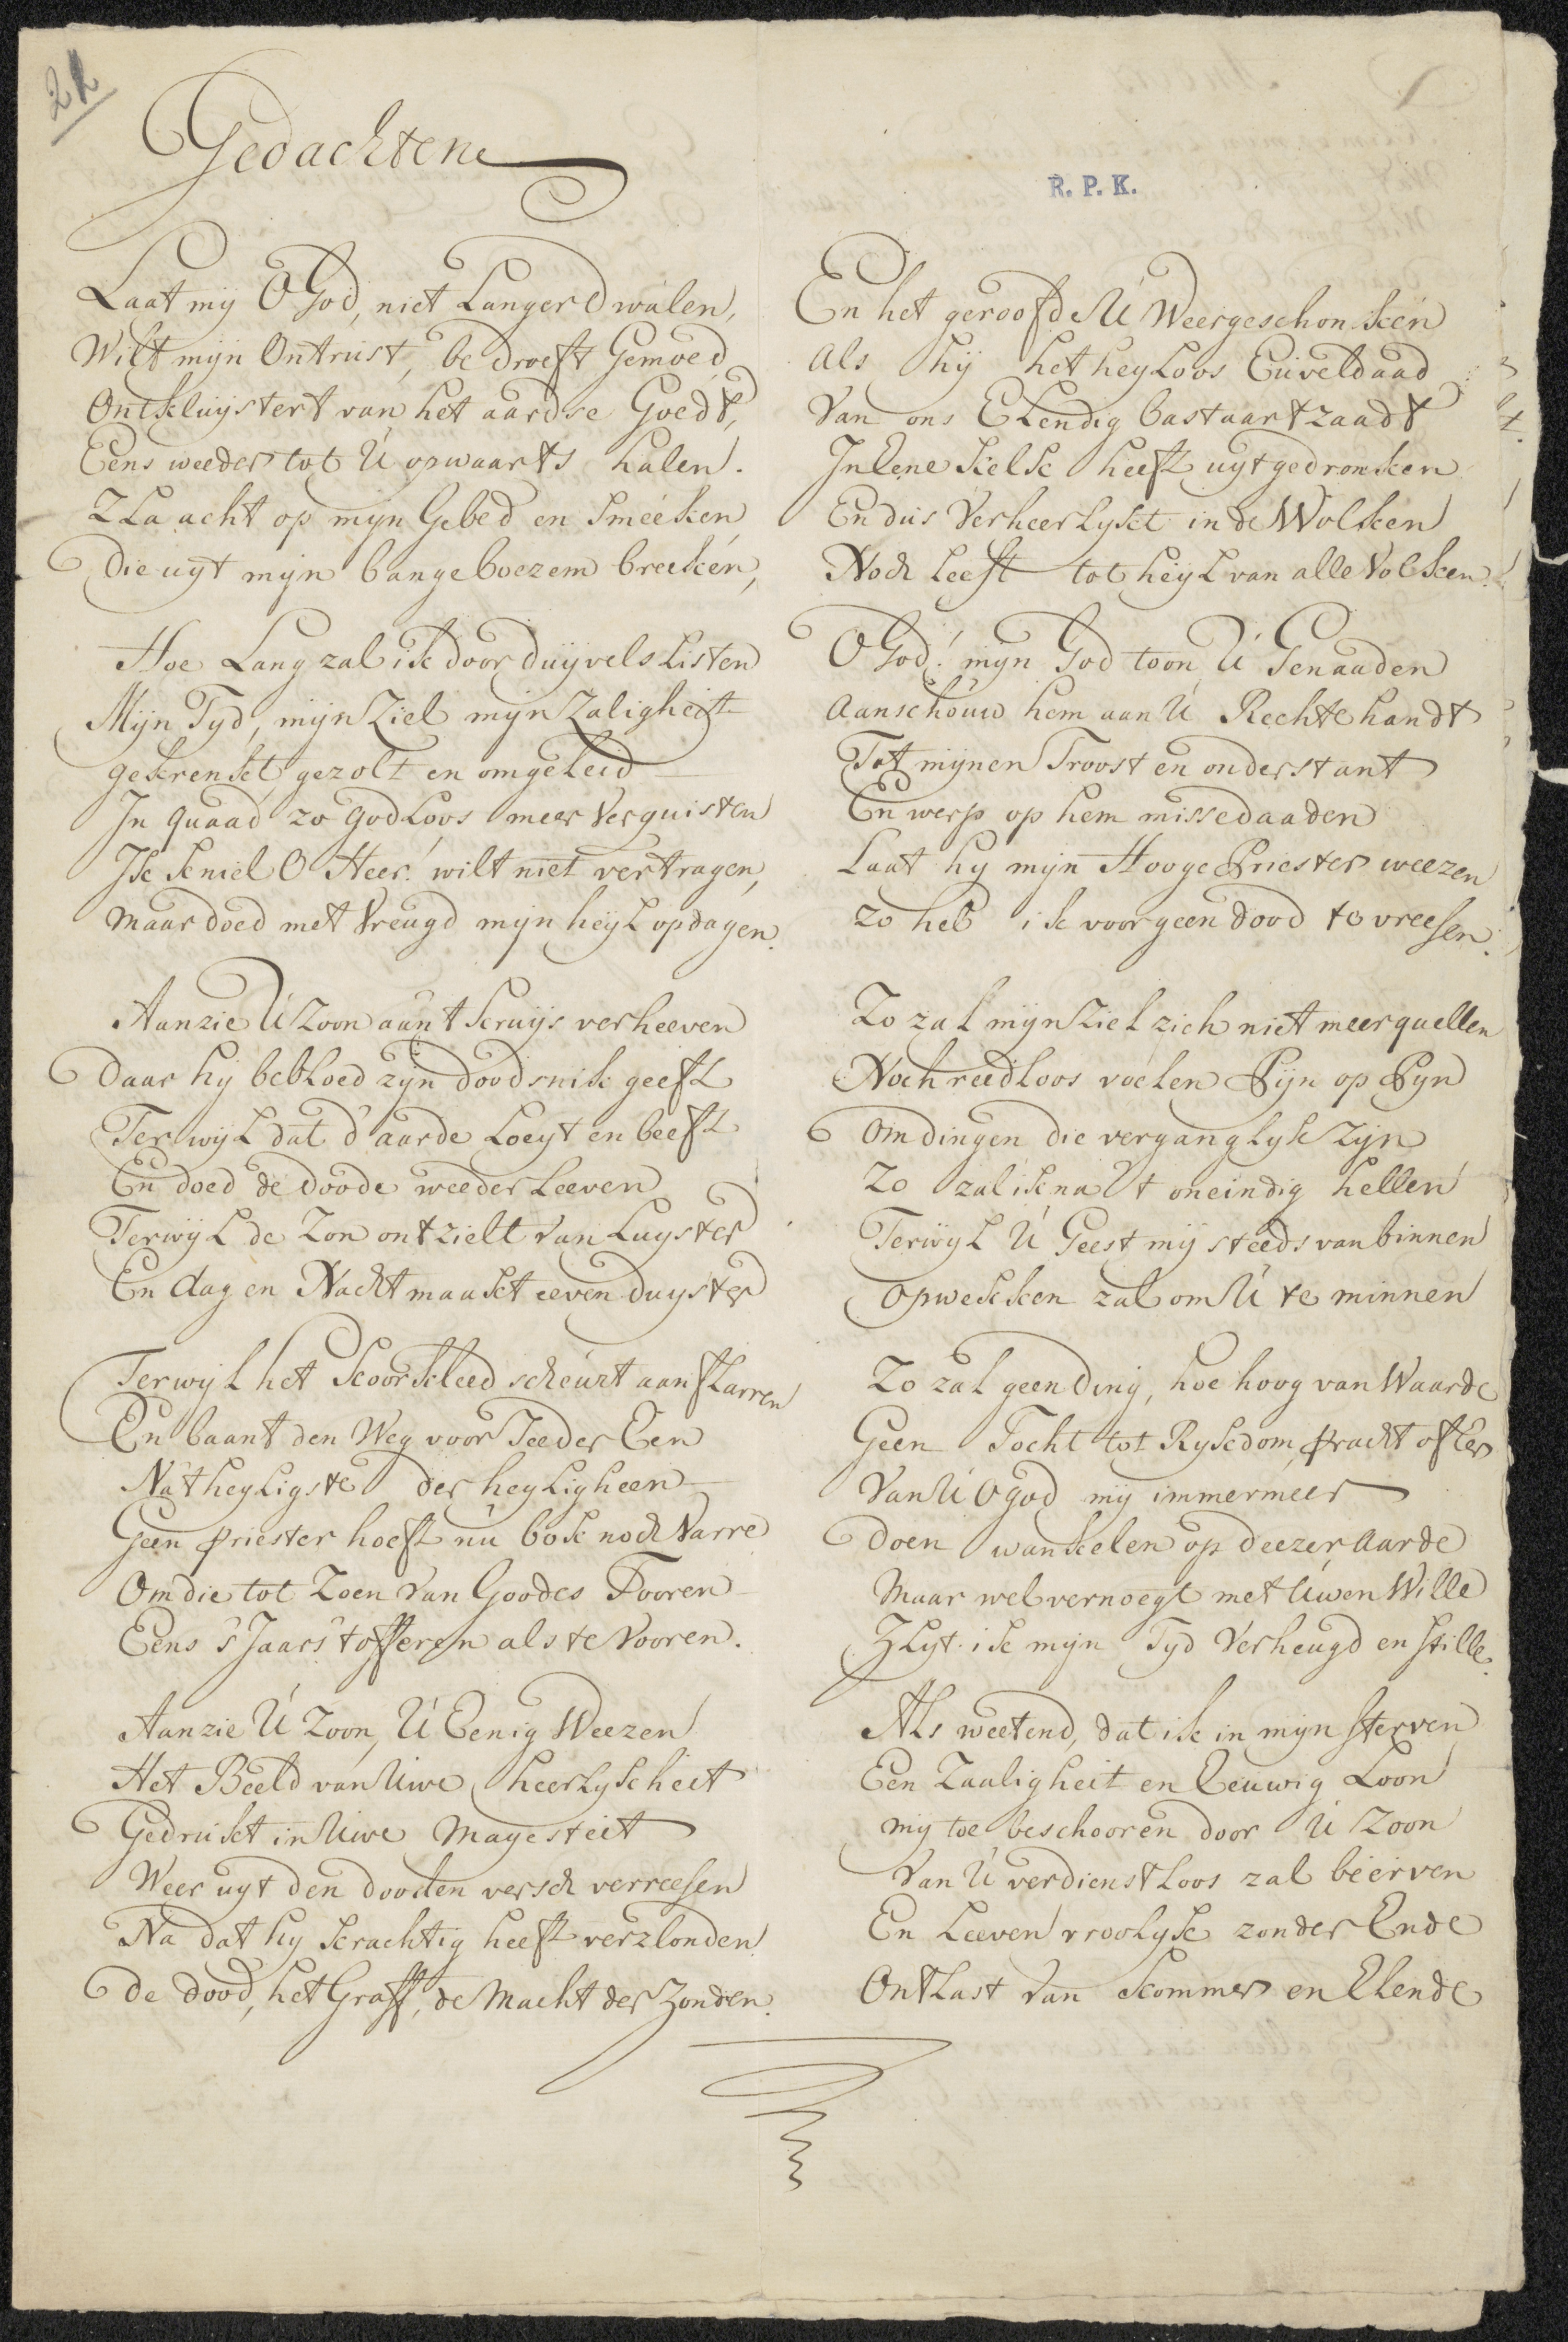 21
Gedachten
R. P. K.
Laat mij O God, niet Langer dwalen,
Wilt mijn Ontrust, bedroeft Gemoed,
Ontkluystert van het aardse Goedt,
Eens weeder tot U opwaarts halen.
Zla acht op mijn Gebed en Smeeken
Die uyt mijn bange boezem breeken,
Hoe Lang zal ik door duyvels Listen
Mijn Tyd, mijn Ziel mijn Zaligheit
gekrenkt, gezolt en omgeleid
In quaad zo godLoos meer Verquisten
Ik kniel O Heer! wilt niet vertragen,
maar doed met Vreugd mijn heyl opdagen.
Aanzie U Zoon aan't kruijs verheeven
Daar hij bebloed zijn doodsnik geeft
Terwijl dat d'aarde Loeyt en beeft
En doed de doode weeder Leeven
Terwijl de Zon ontzielt van Luyster
En dag en Nacht maakt eeven duyster
Terwijl het koorkleed scheurt aan flarren
En baant den Weg voor Ieeder Een
Na't heyligste der heyligheen
Geen priester hoeft nu bok noch Varre
Om die tot Zoen van Goodes Tooren
Eens 's Jaars t'offeren als te Vooren.
Aanzie U Zoon, U Eenig Weezen
Het Beeld van Uwe heerlykheit
Gedrukt in Uwe Mayesteit
Weer uyt den dooden versch verreesen
Na dat hy krachtig heeft verzlonden
de dood, het Graff, de Macht der Zonden.
En het geroofde U Weergeschonken
Als hij het heyloos Euveldaad
Van ons Elendig bastaart zaadt
In Eene kelk heeft uytgedronken
En dus Verheerlykt in de Wolken
Noch Leeft tot heyl van alle Volken.
O God! mijn God toon U Genaaden
Aanschouw hem aan U Rechtehandt
Tot mijnen Troost en onderstant
En werp op hem missedaaden
Laat hy mijn Hooge Priester weezen
zo heb ik voor geen dood te vreesen.
Zo zal mijn Ziel zich niet meer quellen
Noch reedloos voelen Pijn op Pijn
Om dingen die verganglyk Zijn
Zo zal ik na 't oneindig hellen
Terwyl U Geest mij steeds van binnen
Opwekken zal om U te minnen
Zo zal geen ding, hoe hoog van Waarde
Geen Tocht tot Rykdom, pracht of Eer
Van U O god mij immermeer
Doen wankelen op deezer Aarde
Maar wel vernoegt met Uwen Wille
Zlyt ik mijn Tyd Verheugd en stille.
Als weetend, dat ik in mijn sterven
Een Zaaligheit en Eeuwig Loon
mij toe beschooren door U Zoon
Van U verdienstloos zal beerven
En Leeven vroolyk zonder Ende
Ontlast van kommer en Elende